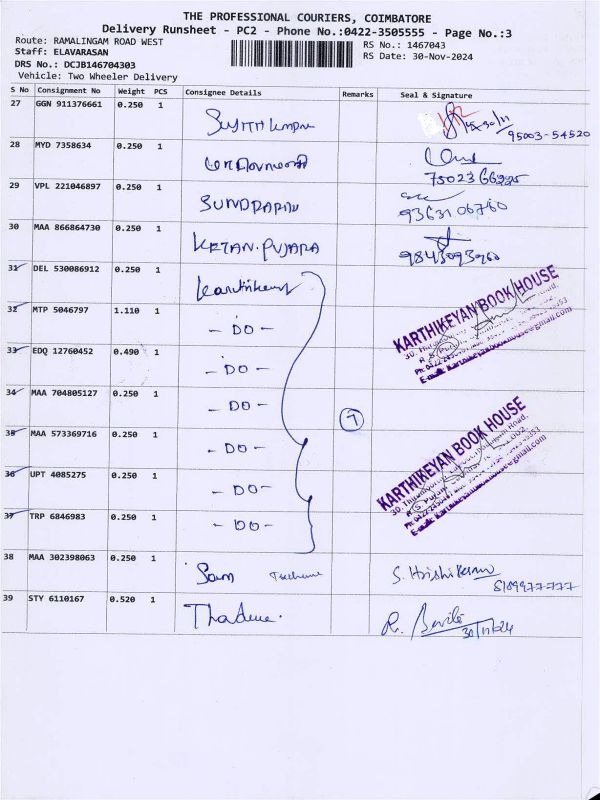 THE PROFESSIONAL COURIERS, COIMBATORE
Delivery Runsheet - PC2 - Phone No.:0422-3505555 - Page No.:3
Route: RAMALINGAM ROAD WEST
RS No.: 1467043
Staff: ELAVARASAN
RS Date: 30-Nov-2024
DRS No.: DCJB146704303
Vehicle: Two Wheeler Delivery
S No Consignment No Weight PCS Consignee Details Remarks Seal & Signature
27 GGN 911376661 0.250 1
95003-54520
28 MYD 7358634 0.250 1
75023 66225
29 VPL 221046897 0.250 1
9363106760
30 MAA 866864730 0.250 1 KETAN.PUJARA
31 DEL 530086912 0.250 1
32 MTP 5046797 1.110 1 - DO -
33 EDQ 12760452 0.490 1 - DO -
34 MAA 704805127 0.250 1 - DO -
7
35 MAA 573369716 0.250 1 - DO -
36 UPT 4085275 0.250 1 - DO -
37 TRP 6846983 0.250 1 - DO -
KARTHIKEYAN BOOK HOUSE
KARTHIKEYAN BOOK HOUSE
38 MAA 302398063 0.250 1 Sam S. Hrishikesan
39 STY 6110167 0.520 1
30/11/24